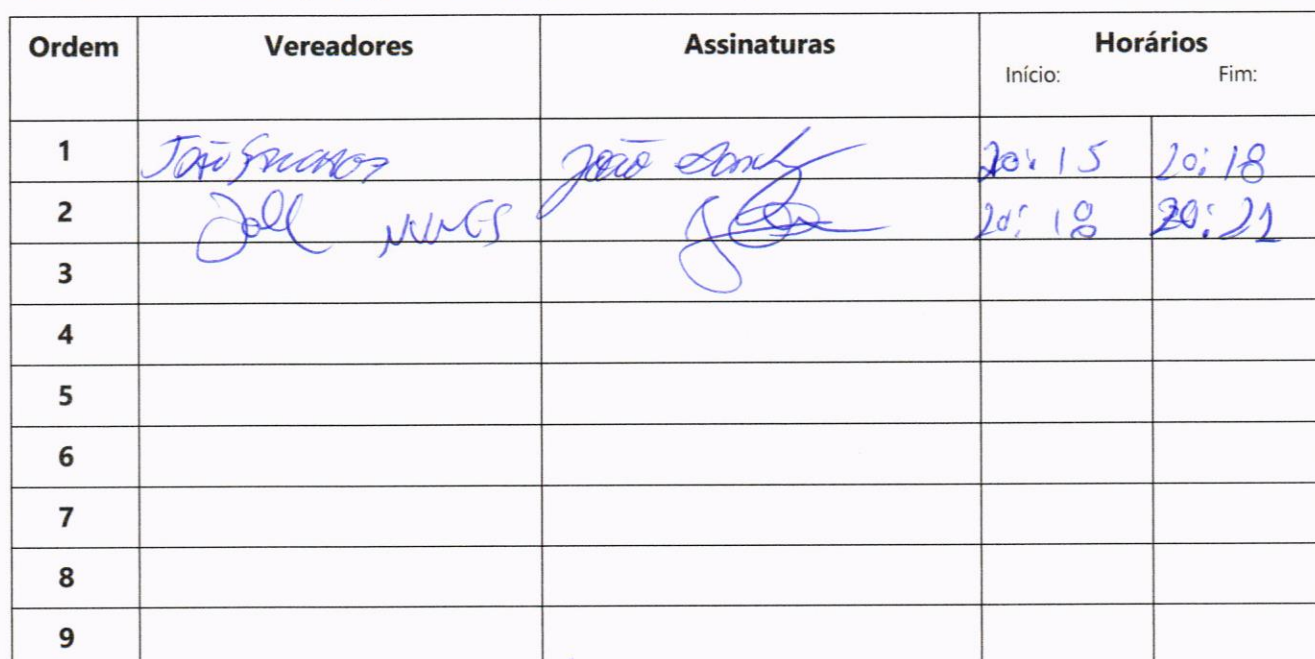 Ordem Vereadores Assinaturas Horários
Início: Fim:
1 João João 20:15 20:18
2 NUNES 20:18 20:21
3
4
5
6
7
8
9